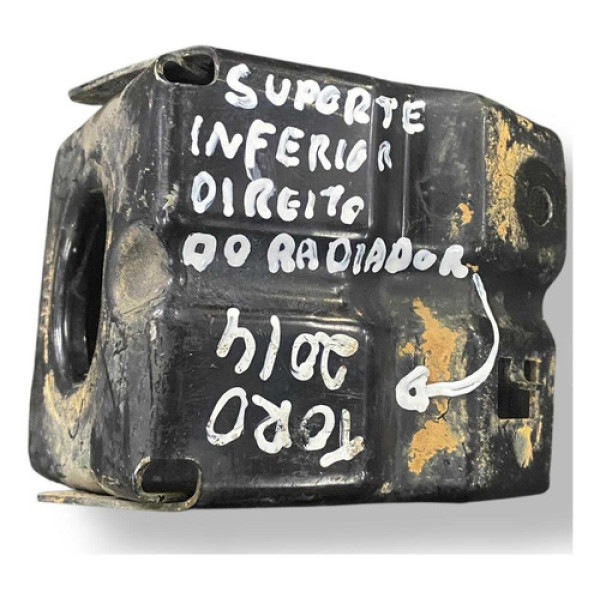 SUPORTE
INFERIOR
DIREITO
DO RADIADOR
TORO
2014